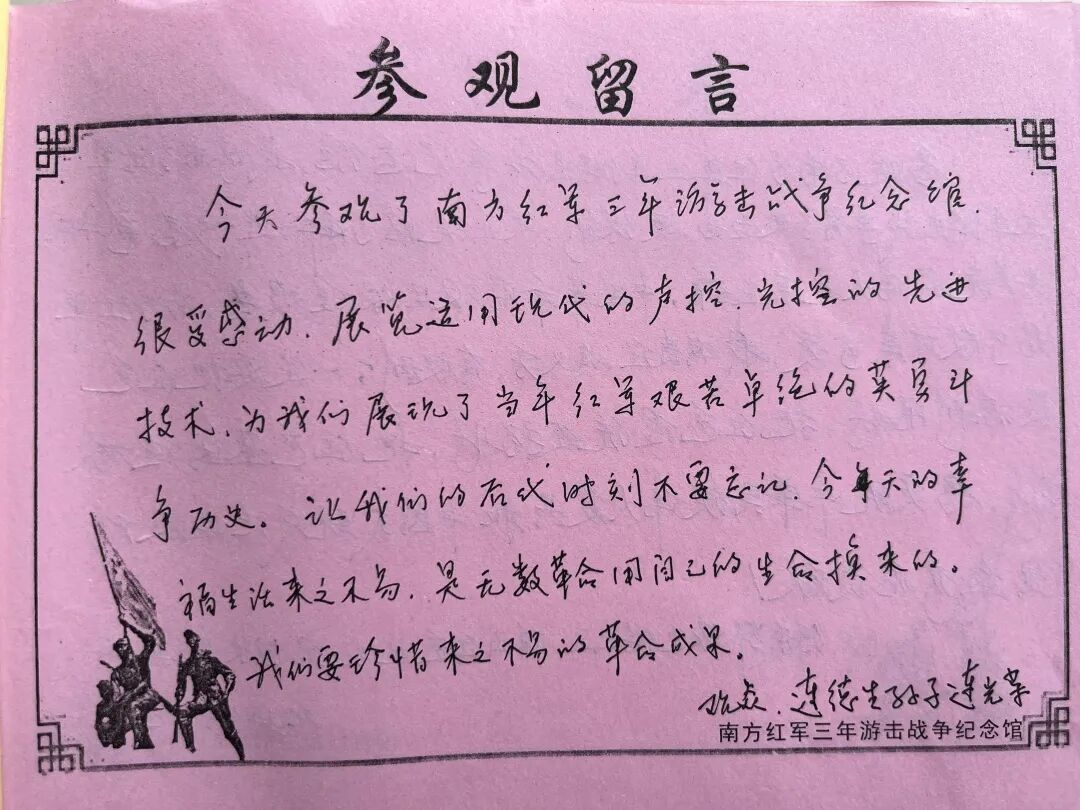 参观留言
今天参观了南方红军三年游击战争纪念馆.
很受感动.展览运用现代的声控.光控的先进
技术.为我们展现了当年红军艰苦卓绝的英勇斗
争历史。让我们的后代时刻不要忘记.今天的幸
福生活来之不易.是无数革命用自己的生命换来的。
我们要珍惜来之不易的革命成果。
连德生孙子连光荣
南方红军三年游击战争纪念馆